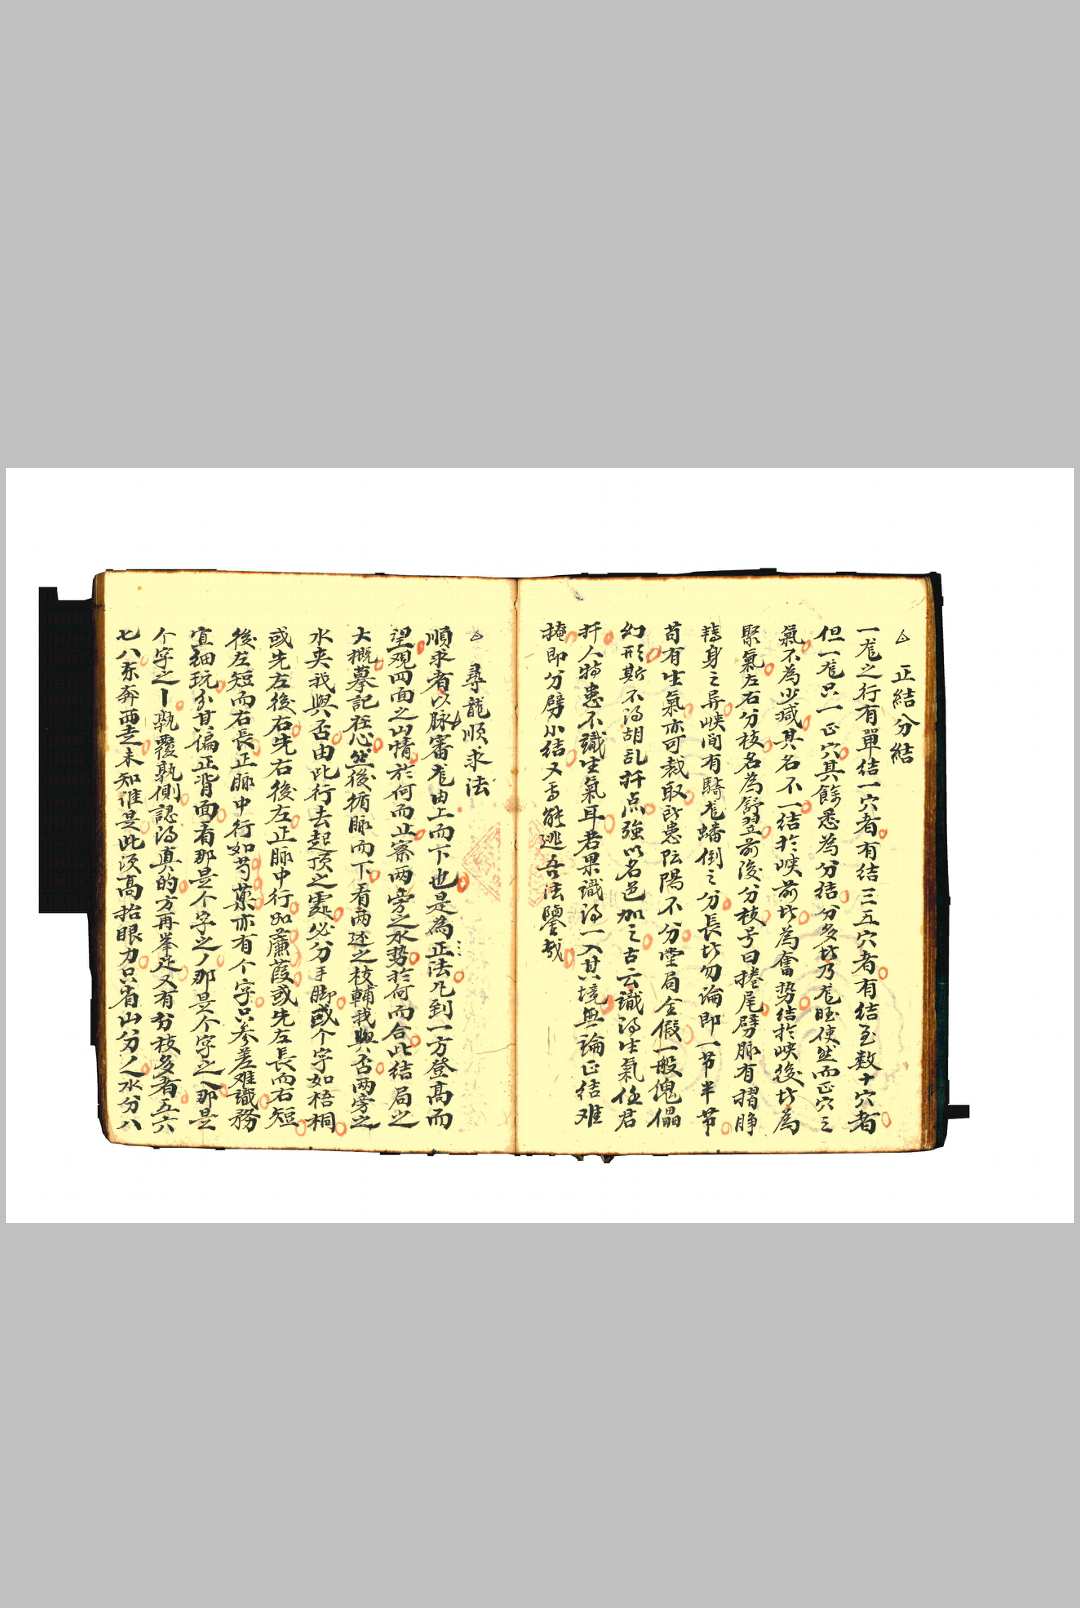 △ 正結分結
一龙之行有單結一穴者有結三五穴者有結至数十穴者
但一龙只一正穴其餘悉為分結分多坊乃龙旺使然而正穴之
氣不為少减其名不一結於峽前坊為奮势結於峽後坊為
聚氣左右分枝名為舒翌前後分枝号曰捲尾劈脉有摺胂
轉身之异峽间有騎龙蟠倒之分長坊勿論即一节半节
苟有生氣亦可裁取所患阴陽不分堂局全假一般傀儡
幻形斯不淂胡乱扦点強以名色加之古云識淂生氣任君
扦人特患不識生氣耳若果識淂一入其境無論正結难
掩即分劈小結又焉能逃吾法鑒哉
△ 尋龍順求法
順求者以脉審龙由上而下也是為正法凡到一方登高而
望观四面之山情於何而止察两旁之水势於何而合此結局之
大概摹記在心然後循脉而下看两边之枝輔我與否两旁之
水夹我與否由此行去起顶之處必分手脚或个字如梧桐
或先左後右先右後左正脉中行如蘼葭或先左長而右短
後左短而右長正脉中行如芍薬亦有个字只参差难識務
宜细玩分其偏正背面看那是个字之丿那是个字之乀那是
个字之丨孰覆孰側認淂真的方再举足又有分枝多者五六
七八东奔西走未知谁是此须高抬眼力只看山分人水分八